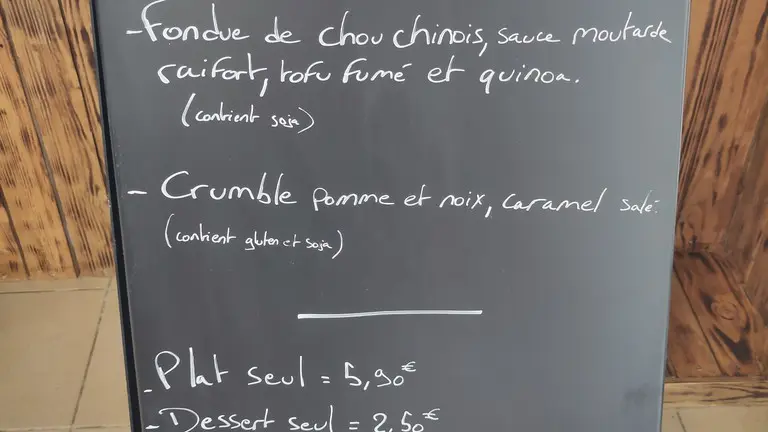 -Fondue de chou chinois, sauce moutarde
raifort, tofu fumé et quinoa.
(contient soja)
- Crumble pomme et noix, caramel salé.
(contient gluten et soja)
- Plat seul = 5,90€
- Dessert seul = 2,50€